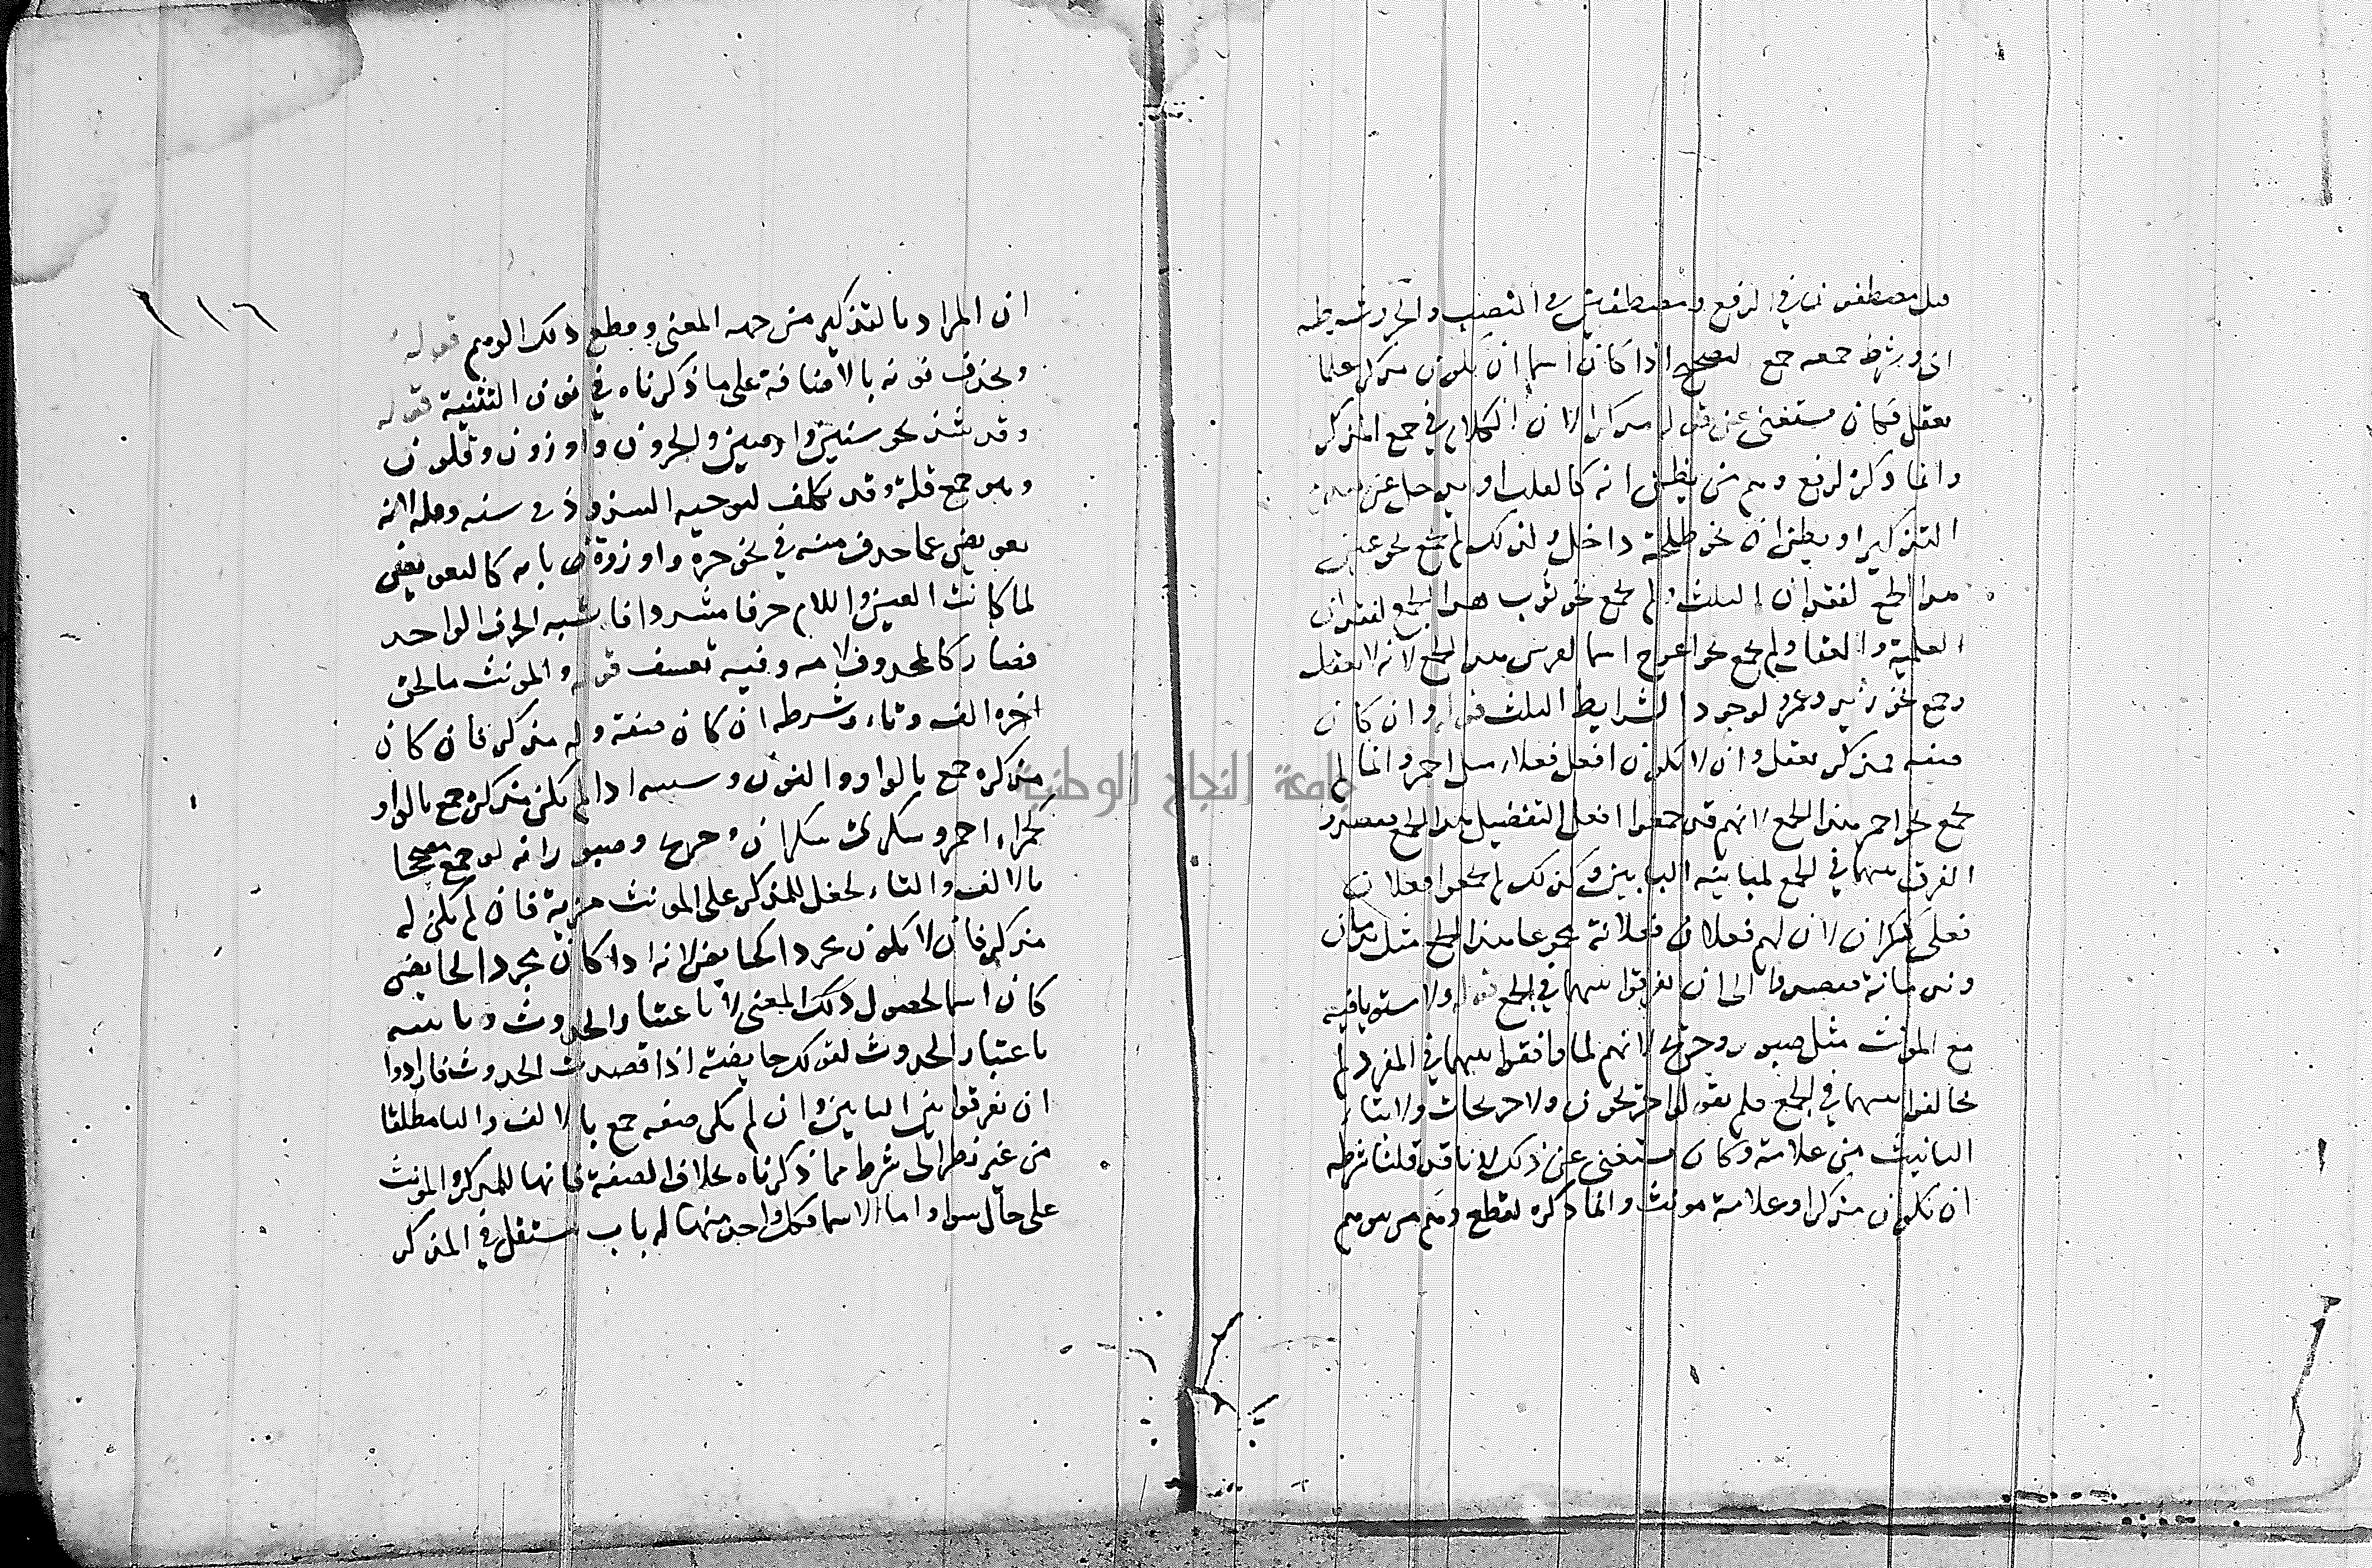 مثل مصطفون في الرفع ومصطفين في النصب والجر وشرطه
اي وشرط جمعه جمع التصحيح اذا كان اسما ان يكون مذكرا علما
يعقل فكان مستغنى عن قوله مذكرا لان الكلام في جمع المذكر
وانما ذكره لرفع وهم من يظن انه كالغلب او يدخل عن
التذكير او يظن ان نحو طلحة داخل ولذلك لم يجمع نحو عين
هذا الجمع لفقدان الثلث ولم يجمع نحو ثوب هذا الجمع لفقدان
العلمية والعقل ولم يجمع نحو اعوج اسما لفرس هذا الجمع لانه لا يعقل
وجمع نحو زيد وعمرو لوجود الشرايط الثلث قوله وان كان
صفه فمذكر يعقل وان لا يكون افعل فعلاء مثل احمر وانما لم
يجمع نحو احمر هذا الجمع لانهم قد جمعوا افعل التفضيل هذا الجمع فقصدوا
الفرق بينهما في الجمع لمباينه البابين وكذلك لم يجمعوا فعلان
فعلى كسكران لان لهم فعلان فعلانة مجموعا هذا الجمع مثل ندمان
وندمانة فقصدوا الى ان يفرقوا بينهما في الجمع قوله ولا مستويا فيه
مع المؤنث مثل صبور وجريح لانهم لما وافقوا بينهما في المفرد لم
يخالفوا بينهما في الجمع فلم يقولوا جريحون ولا جريحات ولا بتاء
التانيث من علامة وكان مستغنى عن ذلك لانا قد قلنا شرطه
ان يكون مذكرا وعلامة مونث وانما ذكره لقطع وهم من يتوهم
١١٦
ان المراد بالتذكير من جهه المعنى وقطع ذلك الوهم قوله
وبحذف نونه بالاضافة على ما ذكرناه في نون التثنية قوله
وقد شذ نحو سنين وارضين والحرون واوزون وقلون
وهو جمع قلة وقد تكلف لتوجيه الشذوذ في سنه وقله لانه
تعويض عما حذف منه في نحو حرة واوزة بابه كالتعويض
لما كانت العين واللام حرفا مشددا فاشبه الحرف الواحد
فصار كالمحذوف لامه وفيه تعسف قوله والمونث ما لحق
اخره الف وتاء وشرطه ان كان صفة وله مذكر فان كان
مذكره جمع بالواو والنون وسببه اذا لم يكن مذكره جمع بالواو
كحمراء احمر وسكرى سكران وجريح وصبور انه لو جمع مصححا
بالالف والتاء لجعل للمذكر على المونث مزية فان لم يكن له
مذكر فان لا يكون مجردا كحايض لانه اذا كان مجردا كحايض
كان اسما لحصول ذلك المعنى لا باعتبار الحدوث وتانيثه
باعتبار الحدوث لقولك حايضة اذا قصدت الحدوث فارادوا
ان يفرقوا بين البابين وان لم يكن صفه جمع بالالف والتا مطلقا
من غير نظر الى شرط مما ذكرناه بخلاف الصفة فانها للمذكر والمونث
على حال سوا واما الاسما فكل واحد منهما له باب مستقل في المذكر
جامعة النجاح الوطنية